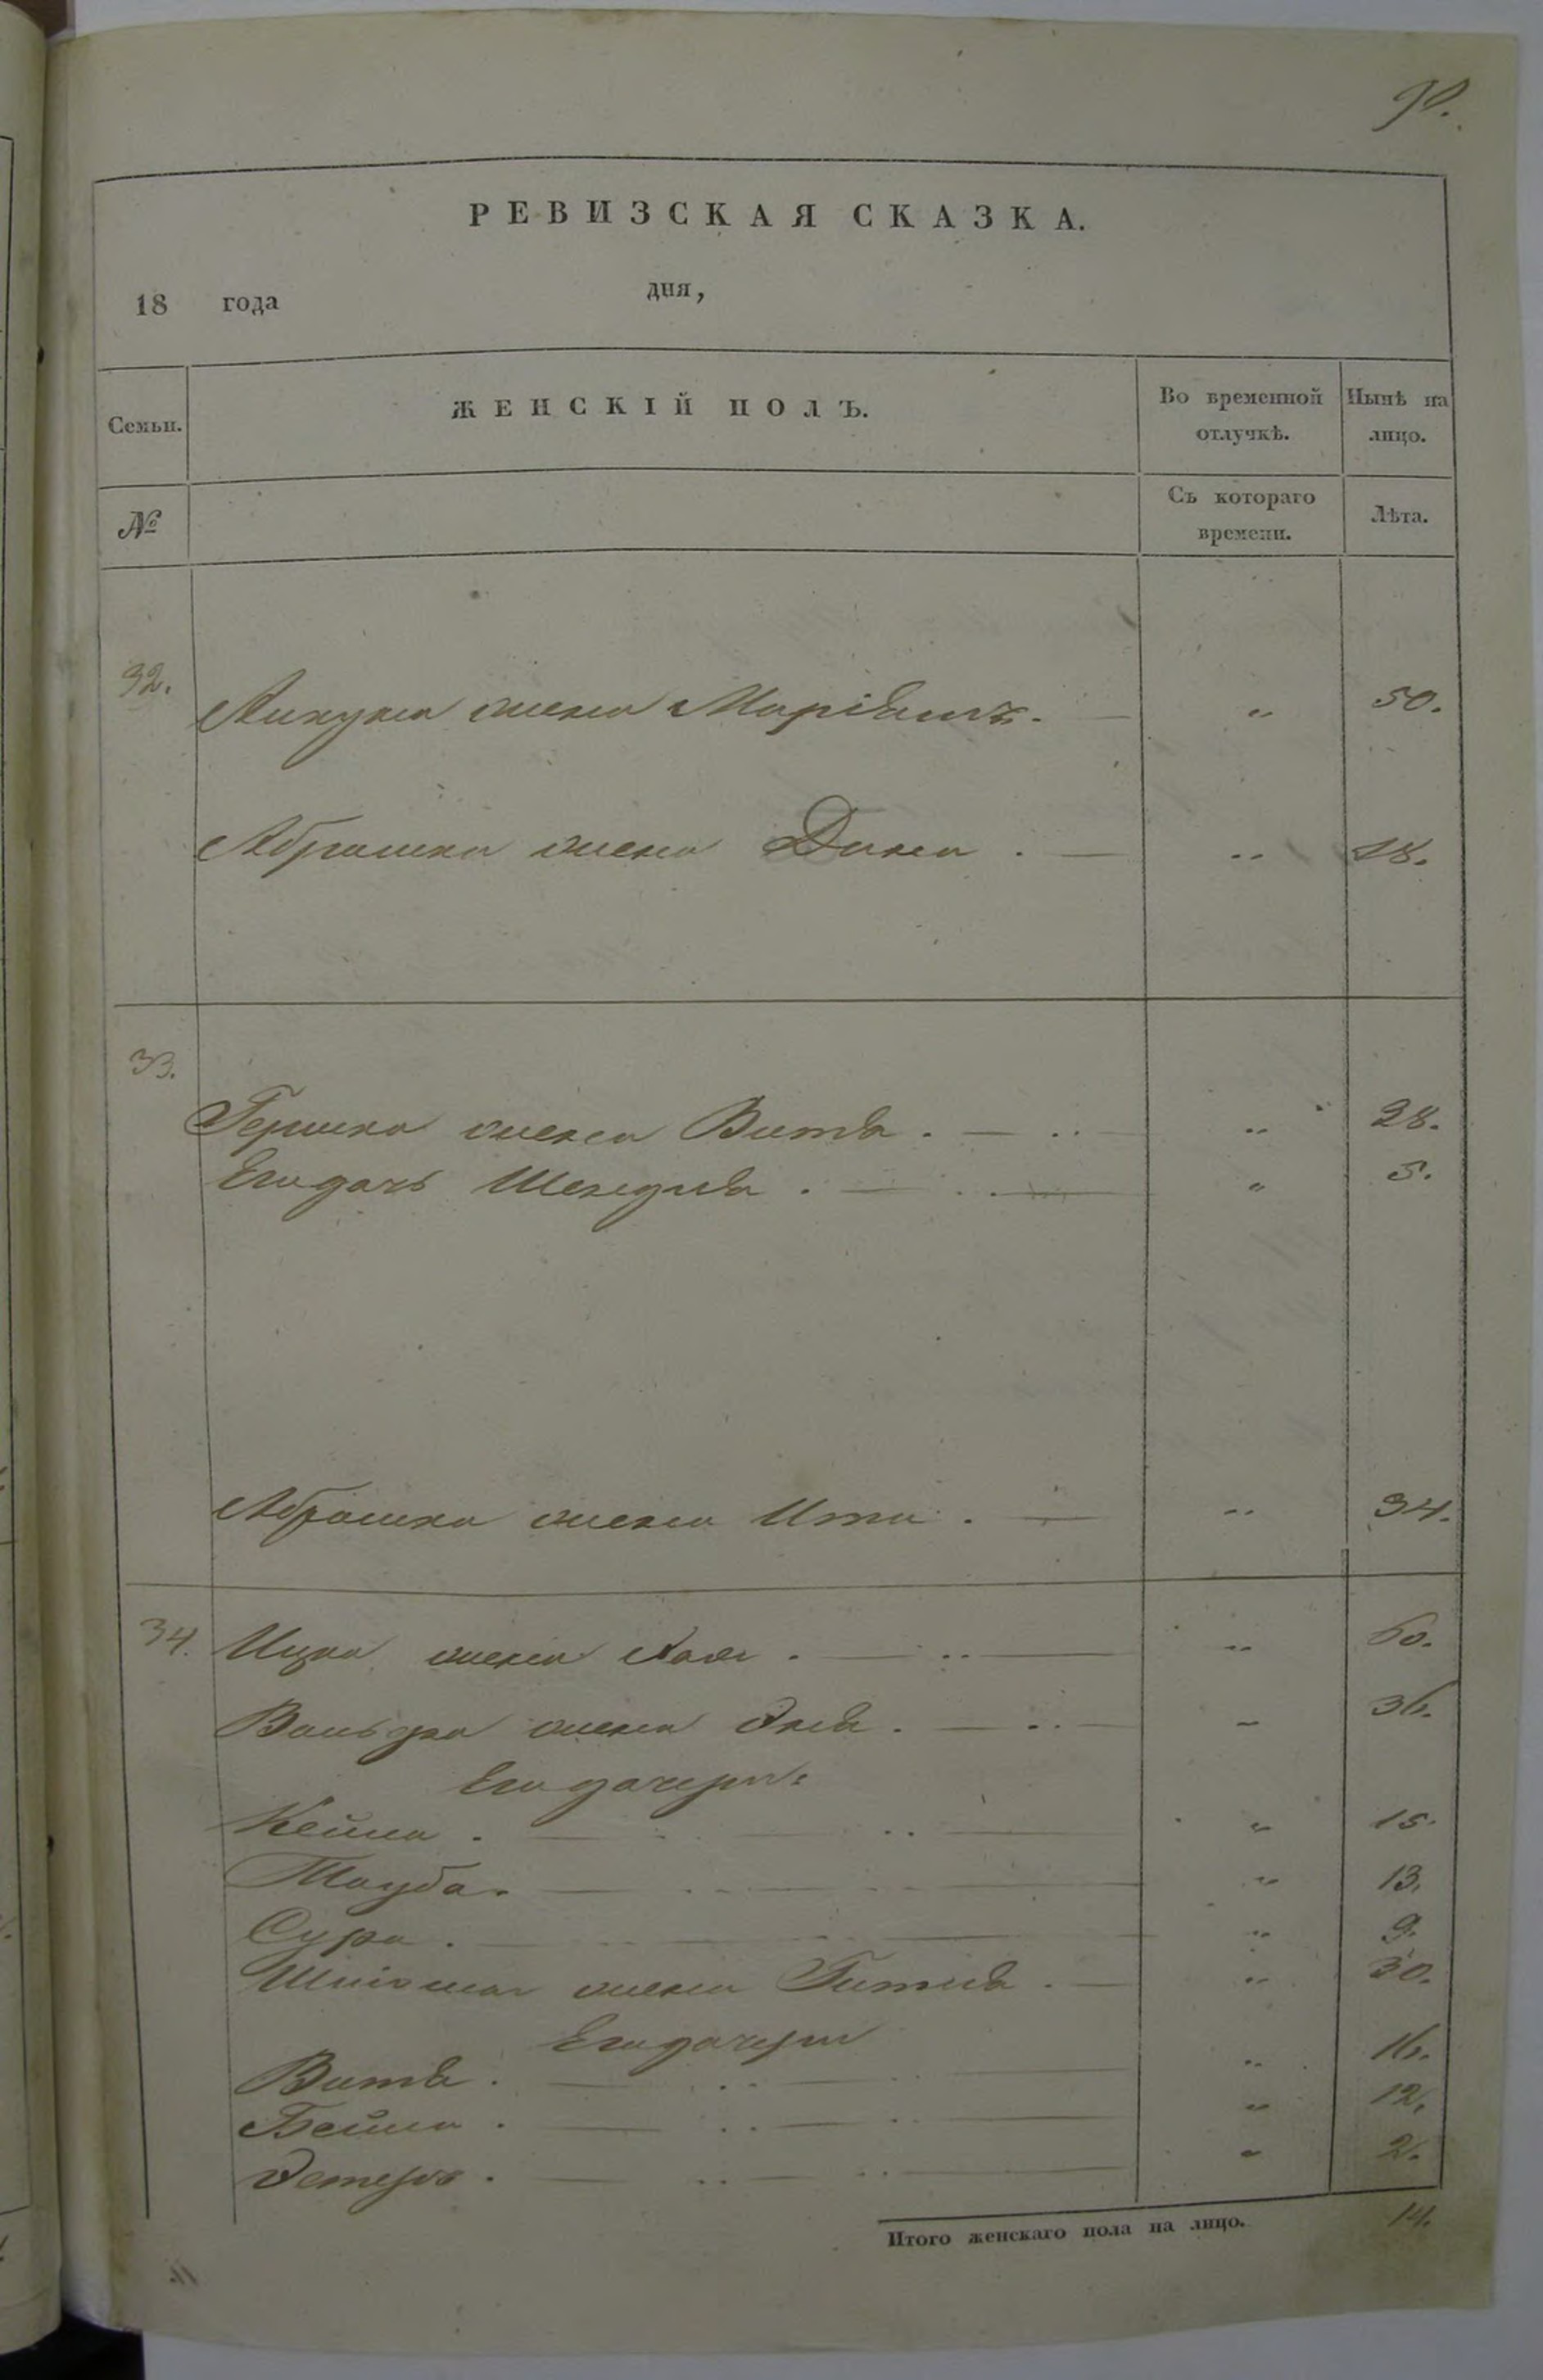 90.
РЕВИЗСКАЯ СКАЗКА.
18 года дня,
Семьи. ЖЕНСКІЙ ПОЛЪ. Во временной отлучкѣ. Нынѣ на лицо.
№ Съ котораго времени. Лѣта.
32. жена „ 50.
Абрашка жена Дина . — „ 18.
33.
Гершка жена Витя . — „ 28.
Его дочь . — „ 5.
Абрашка жена Ита . — „ 34.
34. Ицка жена Хая . — „ 60.
жена . — „ 36.
Его дочери:
Кейла . — „ 15.
Тауба . — „ 13.
Сура . — „ 9.
жена Гитля . — „ 30.
Его дочери
Витя . — „ 16.
Бейла . — „ 12.
Эстеръ . — „ 2.
Итого женскаго пола на лицо. 14.